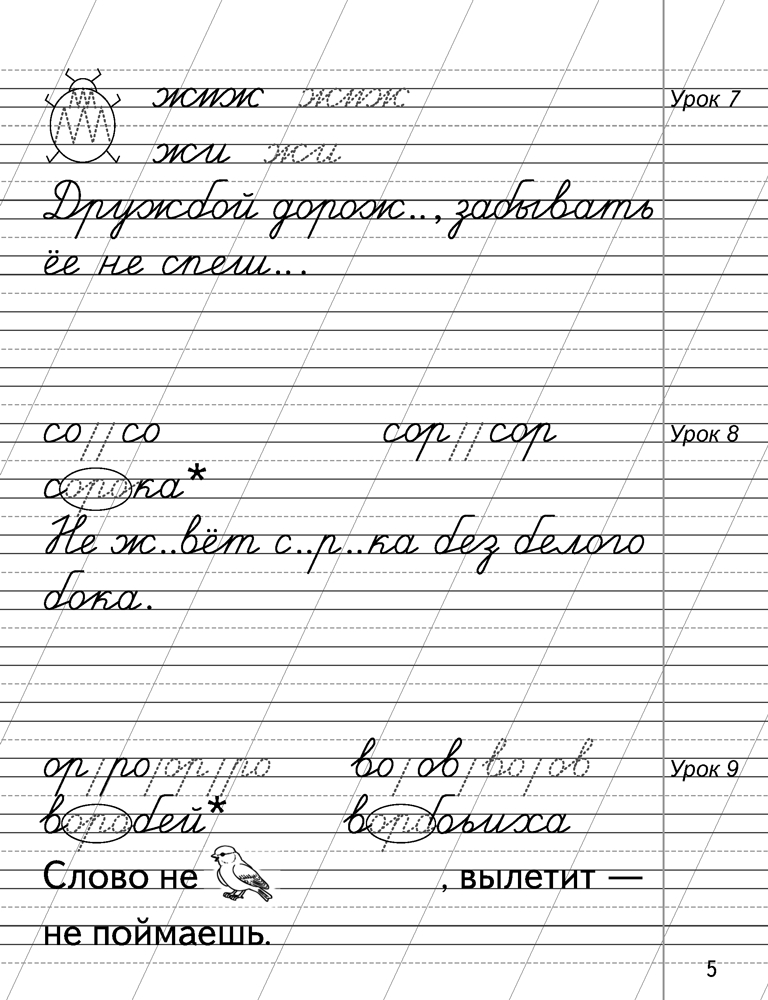 жиж жиж Урок 7
жи жи
Дружбой дорож.., забывать
ёе не спеш...
со // со сор // сор Урок 8
сорока*
Не ж..вёт с..р..ка без белого
бока.
ор/ро/ор/ро во/ов/во/ов Урок 9
воробей* воробьиха
Слово не , вылетит —
не поймаешь.
5